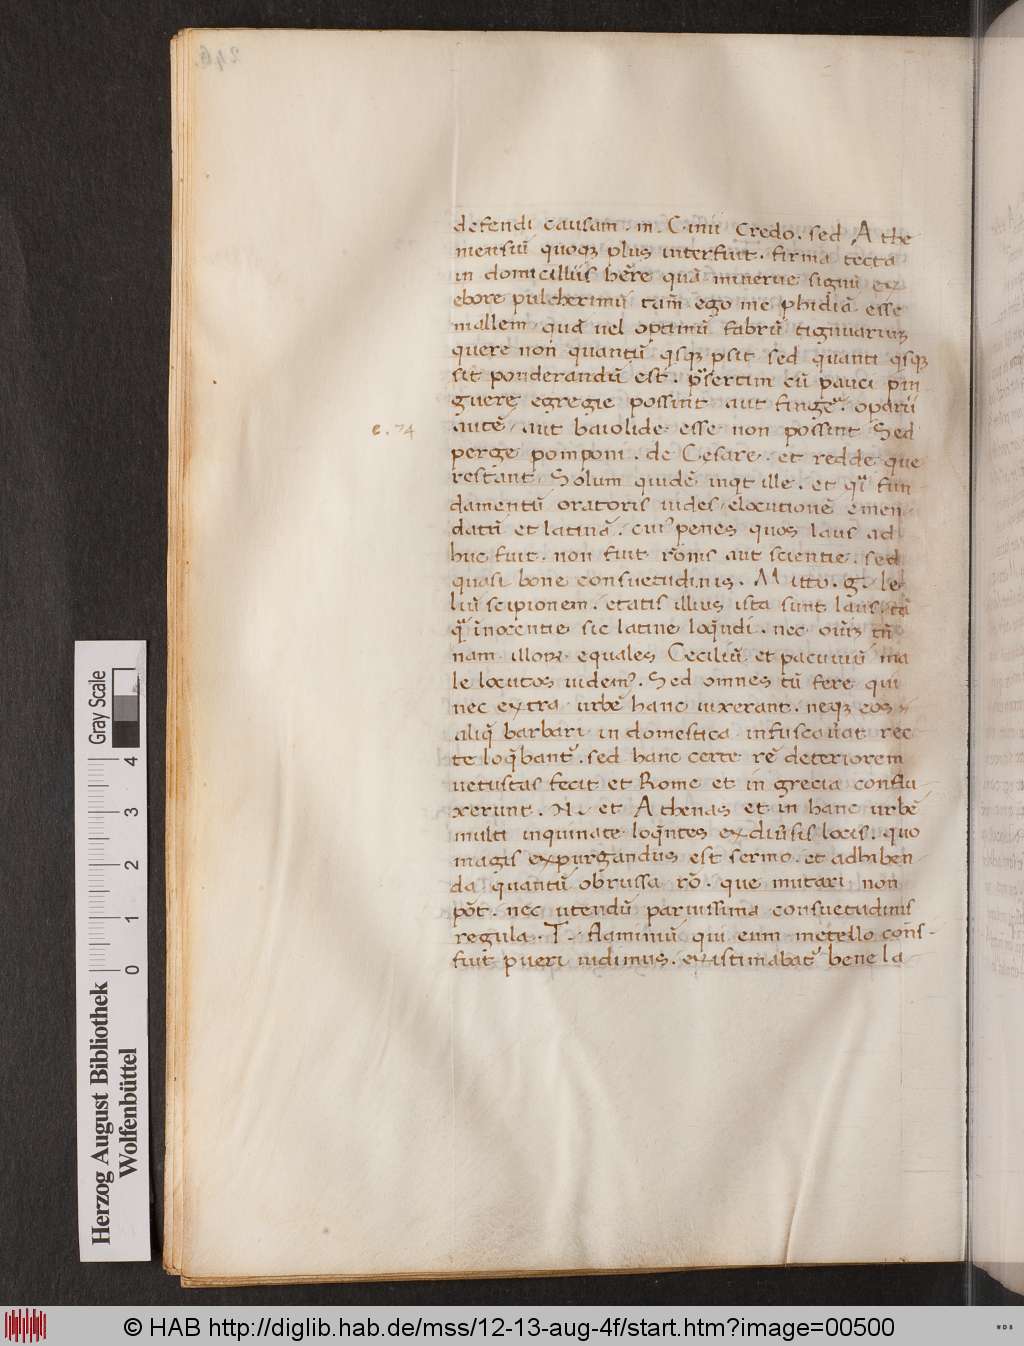 246.
defendi causam. m. C inii Credo. sed Athe
niensiū quoqꝫ plus interfuit. firma tecta
in domiciliis hēre quā minerve signū ex
ebore pulcherimū tam̄ ego me phidiā esse
mallem quā vel optimū fabrū tignuarium
quere non quantū qsqꝫ psit sed quanti qsqꝫ
sit ponderandū est. p̄sertim cū pauci pin
guere egregie possint aut fingē. oparii
autē aut baiolide esse non possint Sed
e. 74
perge pomponi. de Cesare. et redde que
restant Solum quidē inqt ille. et qi fun
damentū oratoris vides elocutionē emen
datū et latinā. cui' penes quos laus ad
huc fuit. non fuit rōnis aut scientie. sed
quasi bone consuetudinis. Mitto. g. le
liū scipionem. etatis illius ista sunt laus tā
q̄ inocentie sic latine loq̄ndi. nec oīuꝫ tn̄
nam illoꝝ equales Ceciliū et pacuviū ma
le locutos videm'. Sed omnes tū fere qui
nec extra urbē hanc vixerant. neqꝫ eos
aliq̄ barbari in domestica infuscav̄at rec
te loq̄bant'. sed hanc certe rē deteriorem
vetustas fecit et Rome et in grecia conflu
xerunt. N. et Athenas et in hanc urbē
multi inquinate loq̄ntes ex div̄sis locis. quo
magis expurgandus est sermo. et adhiben
da quantū obrussa rō. que mutari non
pōt. nec utendū parvissima consuetudinis
regula. T. flaminiū qui eum metello cons
fuit pueri vidimus. existimabat' bene la
Gray Scale
0 1 2 3 4
Herzog August Bibliothek
Wolfenbüttel
© HAB http://diglib.hab.de/mss/12-13-aug-4f/start.htm?image=00500
WDB